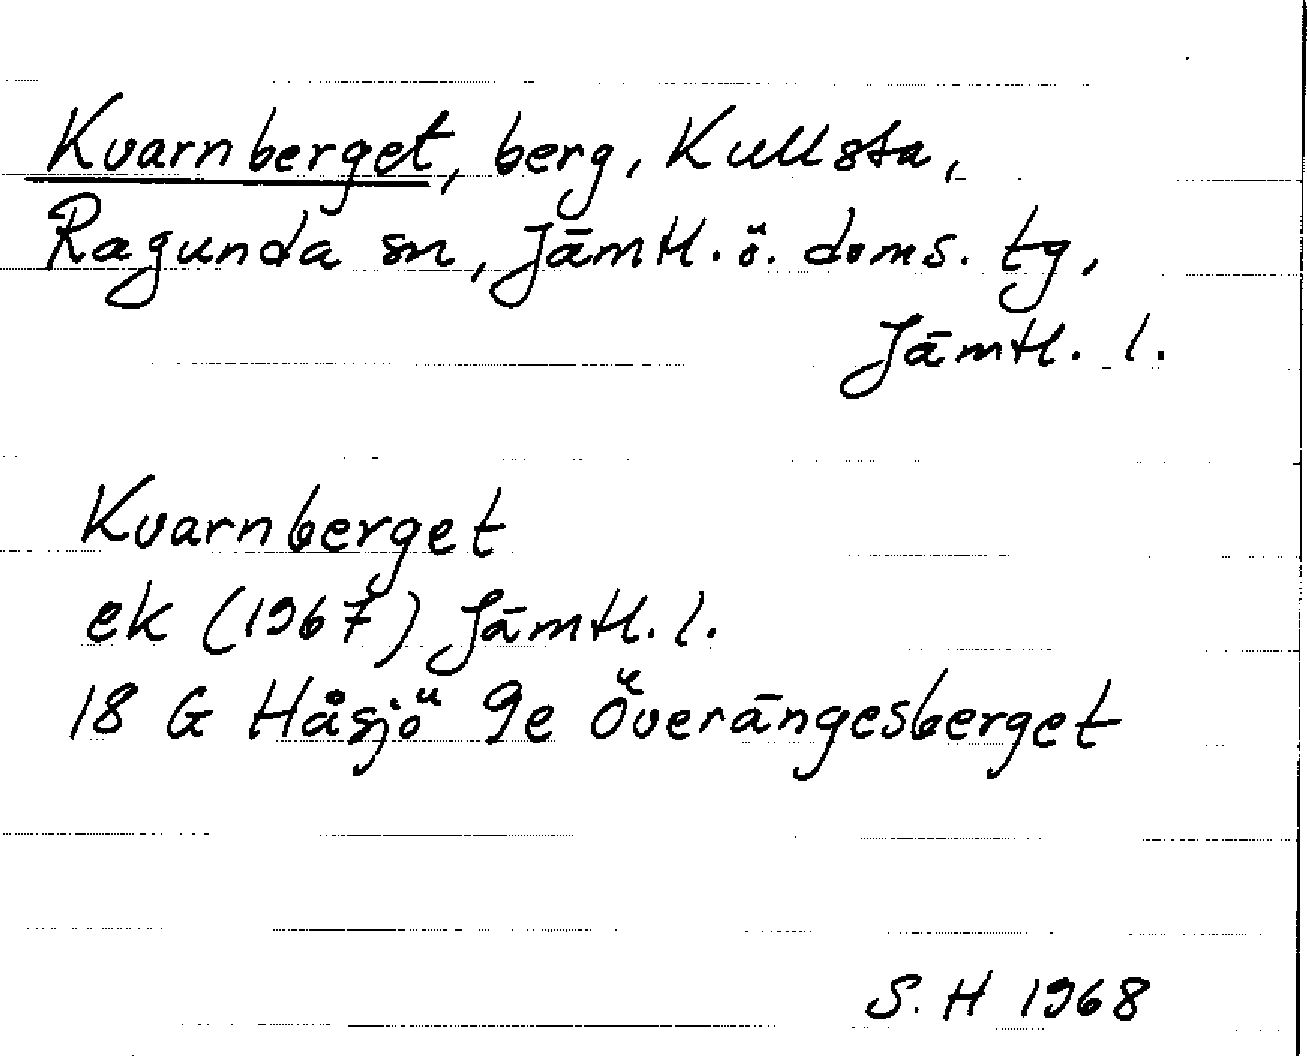 Kvarnberget, berg, Kullsta,
Ragunda sn, Jämtl. ö. doms. tg,
Jämtl. l.
Kvarnberget
ek (1967) Jämtl. l.
18 G Håsjö 9e Överängesberget
S. H 1968